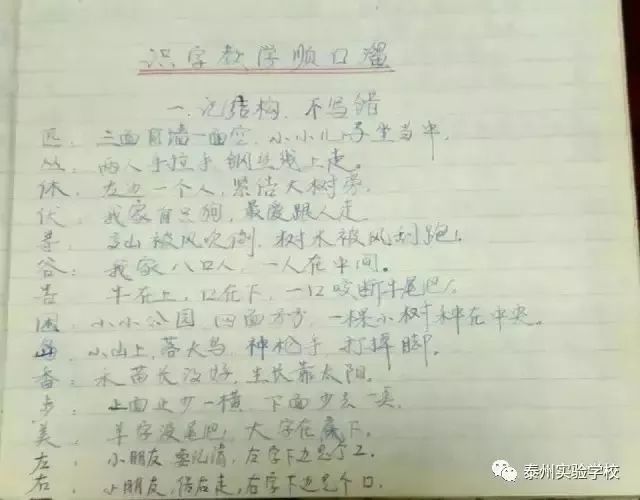 识字教学顺口溜
一、记结构、不写错
匹：三面有墙一面空，小小儿子坐当中，
丛：两人手拉手，钢丝线上走。
休：左边一个人，紧傍大树旁，
伏：我家有只狗，最爱跟人走
寻：高山被风吹倒，树木被风刮跑。
谷：我家八口人，一人在中间。
告：牛在上，口在下，一口咬断牛尾巴。
困：小小公园，四面方方，一棵小树种在中央。
岛：小山上，落大鸟，神枪手，打掉脚。
香：禾苗长没好，生长靠太阳。
步：上面止少一横，下面少去一点。
美：羊字没尾巴，大字在底下。
左：小朋友要记清，左字下边是个工
右：小朋友，信右走，右字下边是个口
泰州实验学校